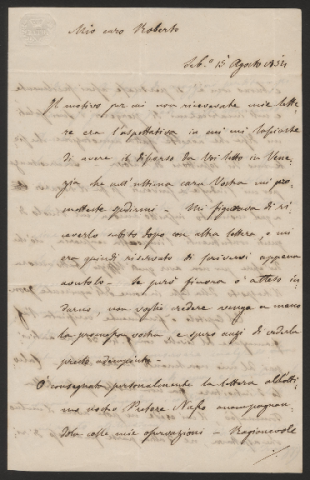 Mio caro Roberto
Seb.º 15 Agosto 1834
Il motivo per cui non riceveste mie lette-
re era l'aspettativa in cui mi lasciaste
di avere il discorso da Voi letto in Vene-
zia, che nell'ultima cara Vostra mi pro-
metteste spedirmi - Mi figurava di ri-
ceverlo subito dopo con altra lettera e mi
era quindi riservato di scrivervi appena
avutolo - Se però finora ò atteso in-
darno, non voglio credere venga a manco
la promessa vostra e spero anzi di vederla
presto adempiuta -
Ò consegnata personalmente la lettera all'otti-
mo nostro Pretore Napo accompagnan-
dola colle mie operazioni - Ragionevole